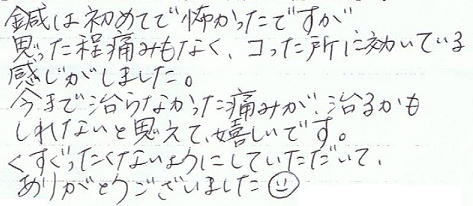 鍼は初めてで怖かったですが
思った程痛みもなく、コった所に効いている
感じがしました。
今まで治らなかった痛みが、治るかも
しれないと思えて、嬉しいです。
くすぐったくないようにしていただいて、
ありがとうございました